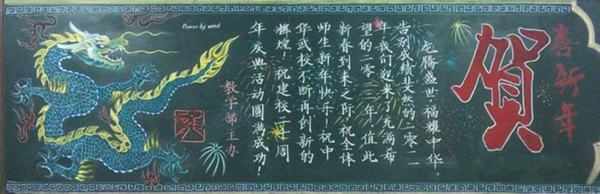 喜新年
贺
龙腾盛世,福耀中华,
告别成绩斐然的二零一一
年我们迎来了充满希
望的二零一二年,值此
新春到来之际,祝全体
师生新年快乐!祝中
华武校不断再创新的
辉煌!祝建校二十周
年庆典活动圆满成功!
教学部主办